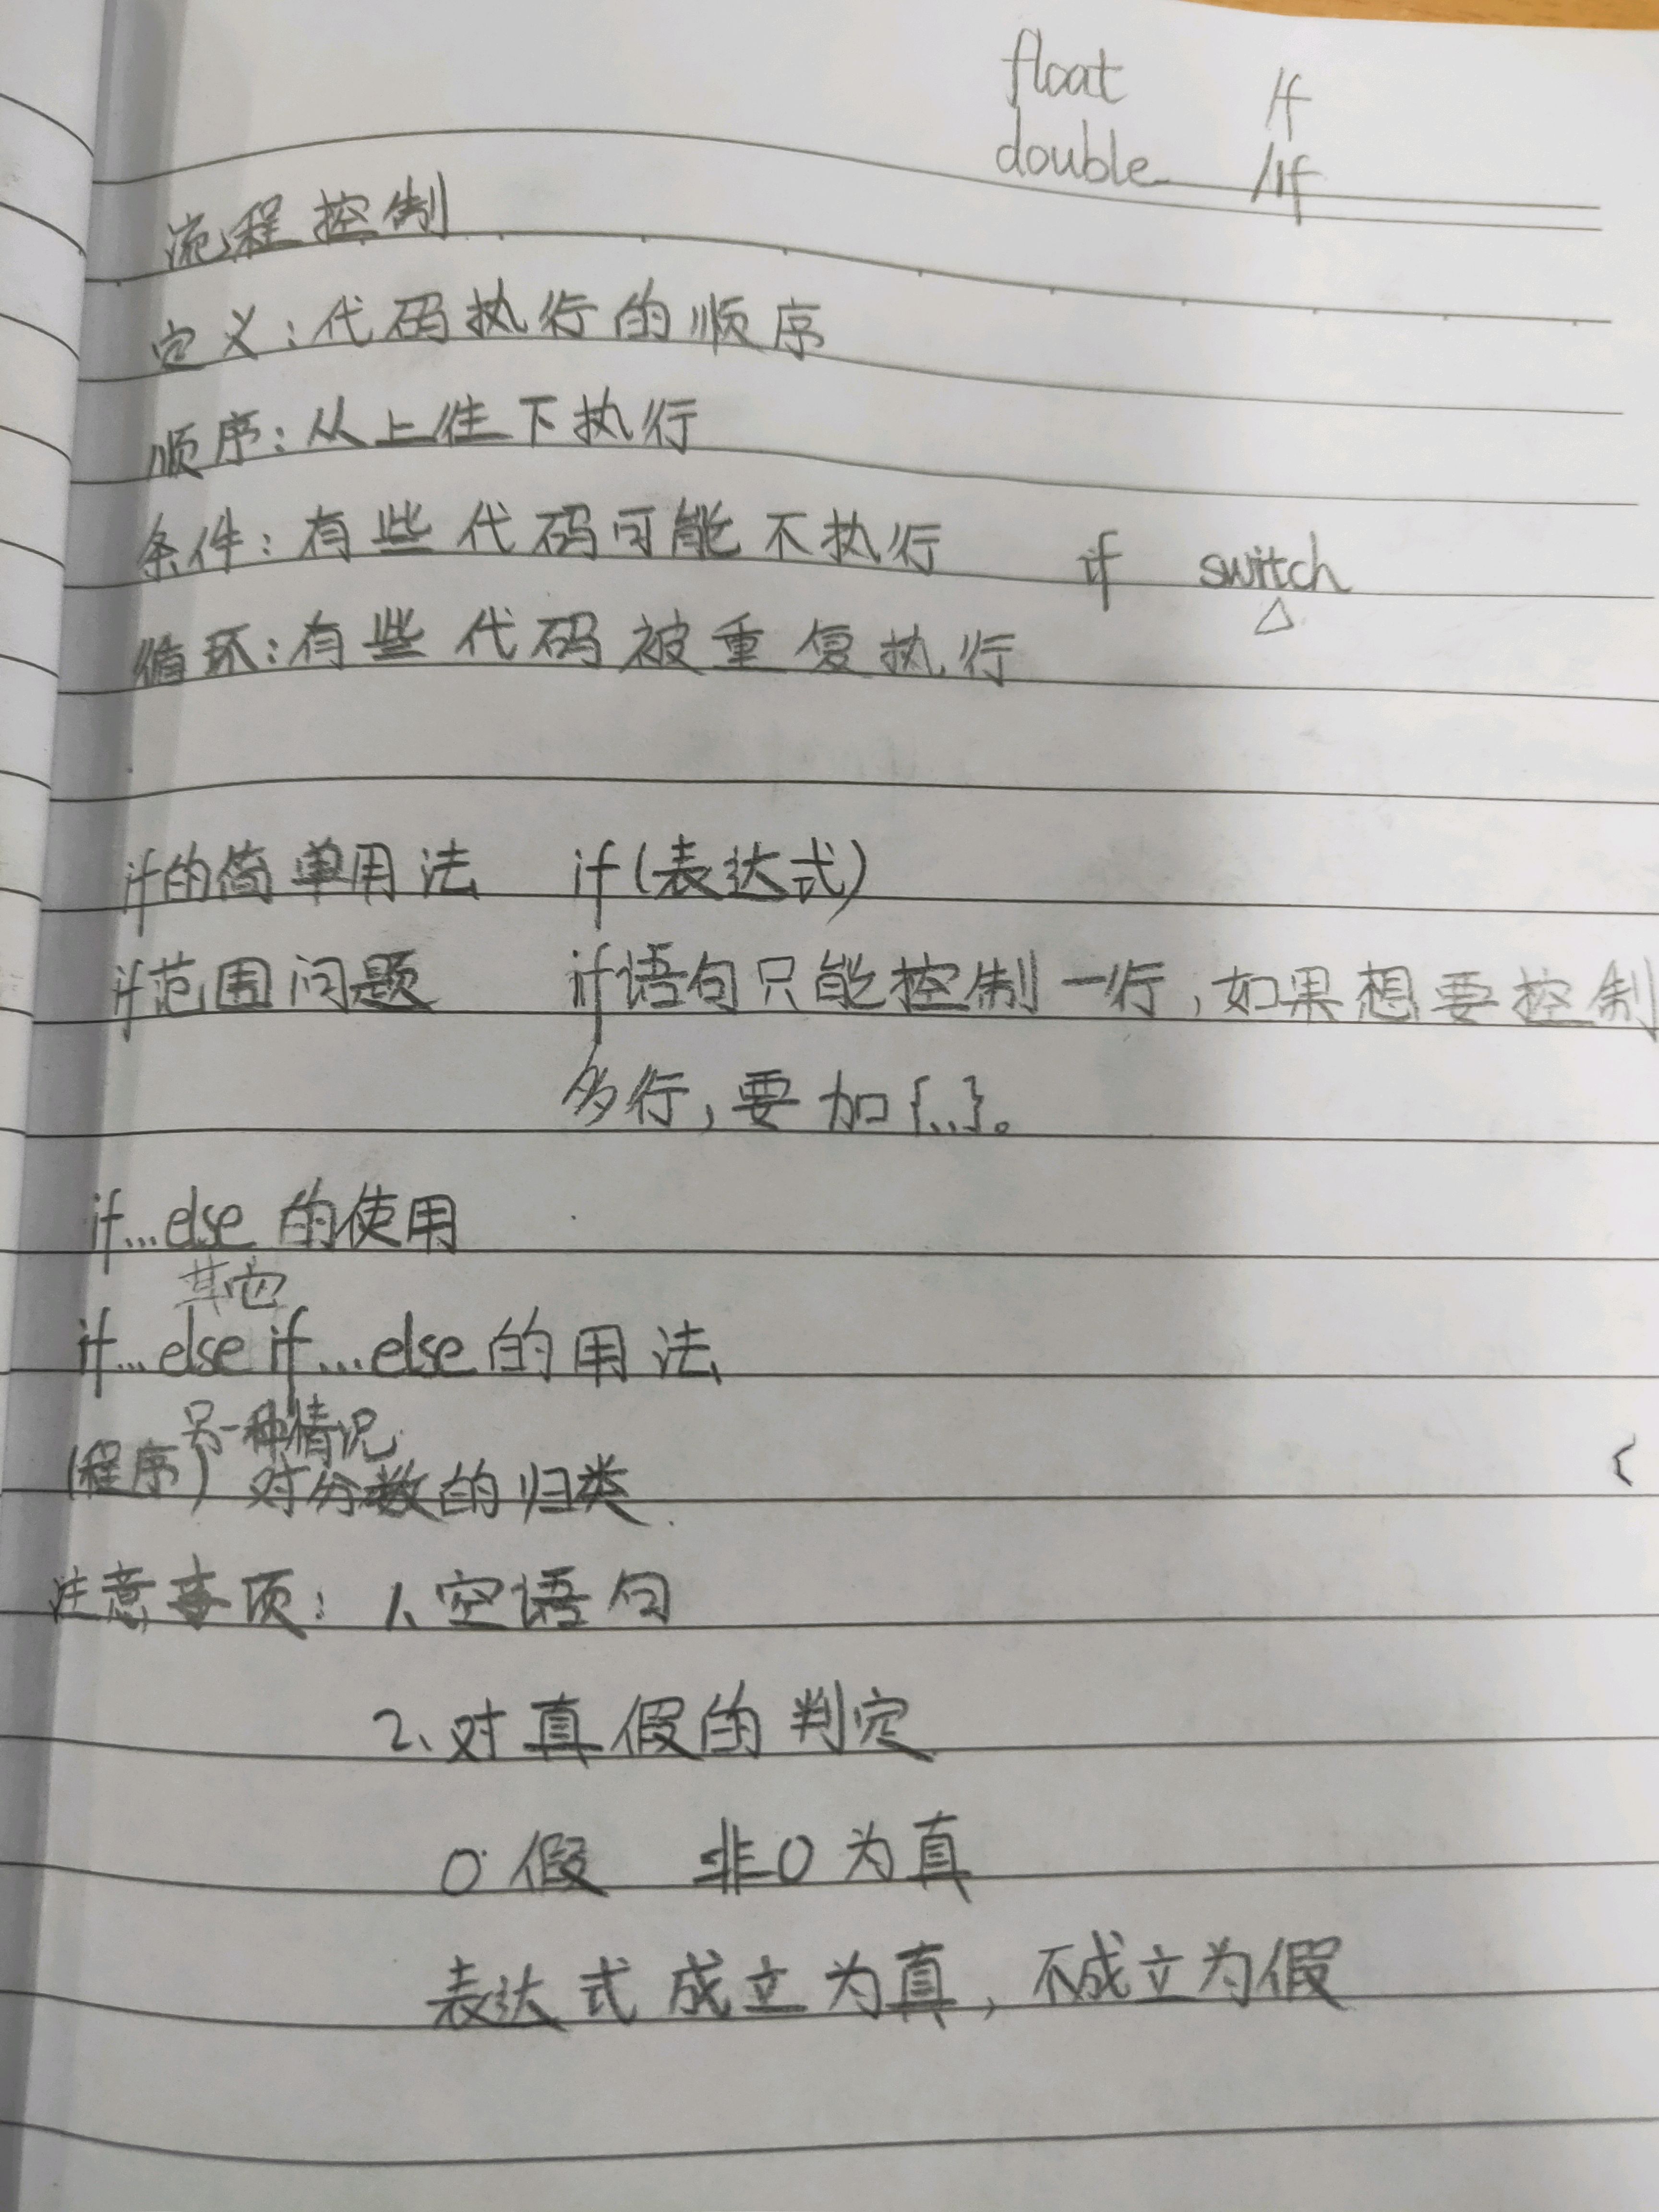 float /f
double /lf
流程控制
定义:代码执行的顺序
顺序:从上往下执行
条件:有些代码可能不执行 if switch
△
循环:有些代码被重复执行
if的简单用法 if(表达式)
if范围问题 if语句只能控制一行,如果想要控制
多行,要加{...}。
if...else 的使用
其它
if...else if...else的用法
另一种情况
(程序) 对分数的归类.
注意事项: 1、空语句
2、对真假的判定
0 假 非0为真
表达式成立为真,不成立为假